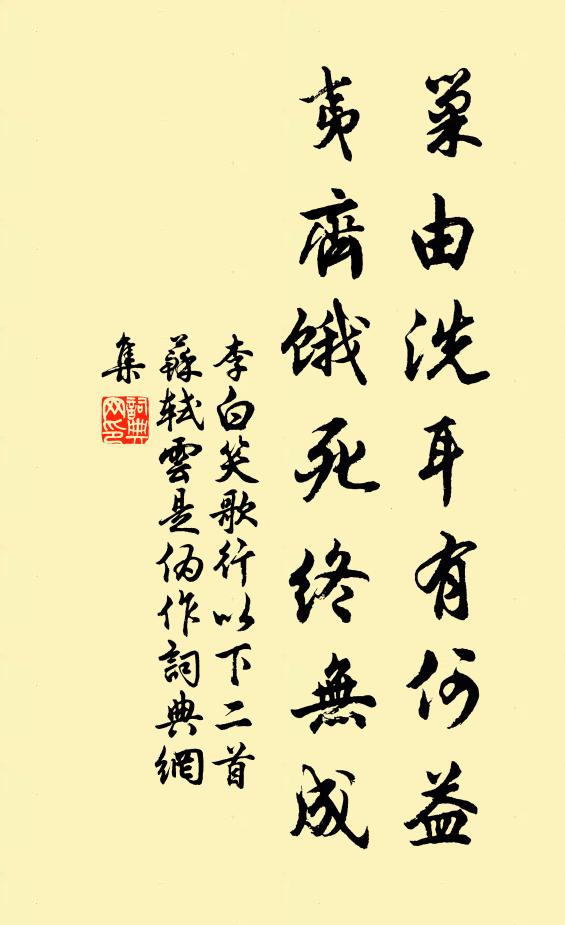 巢由洗耳有何益
夷齊餓死終無成
李白笑歌行以下二首
蘇軾雲是偽作詞典網
集
詞典網印